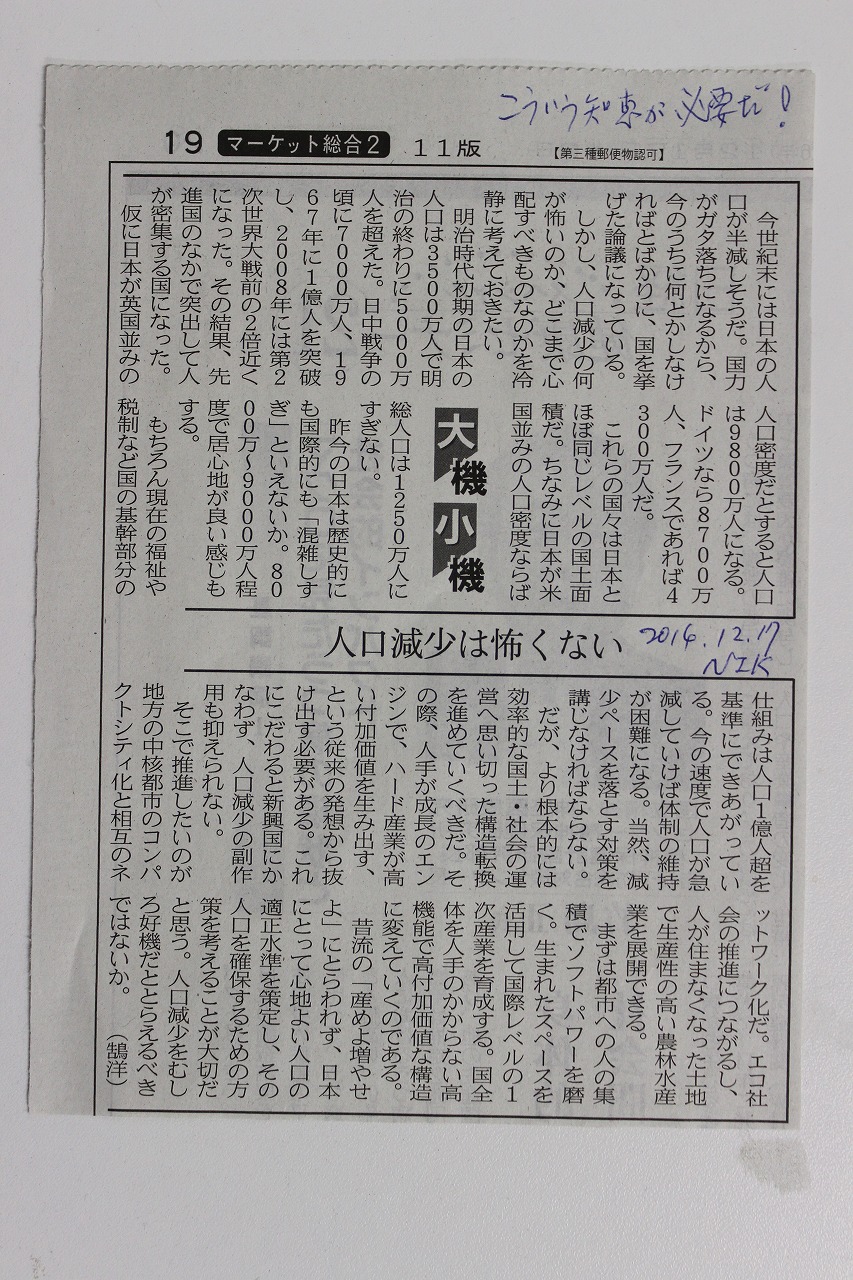 こういう知恵が必要だ!
19 マーケット総合2 11版 【第三種郵便物認可】
今世紀末には日本の人
口が半減しそうだ。国力
がガタ落ちになるから、
今のうちに何とかしなけ
ればとばかりに、国を挙
げた論議になっている。
しかし、人口減少の何
が怖いのか、どこまで心
配すべきものなのかを冷
静に考えておきたい。
明治時代初期の日本の
人口は3500万人で明
治の終わりに5000万
人を超えた。日中戦争の
頃に7000万人、19
67年に1億人を突破
し、2008年には第2
次世界大戦前の2倍近く
になった。その結果、先
進国のなかで突出して人
が密集する国になった。
仮に日本が英国並みの
人口密度だとすると人口
は9800万人になる。
ドイツなら8700万
人、フランスであれば4
300万人だ。
これらの国々は日本と
ほぼ同じレベルの国土面
積だ。ちなみに日本が米
国並みの人口密度ならば
大機小機
総人口は1250万人に
すぎない。
昨今の日本は歴史的に
も国際的にも「混雑しす
ぎ」といえないか。80
00万〜9000万人程
度で居心地が良い感じも
する。
もちろん現在の福祉や
税制など国の基幹部分の
人口減少は怖くない
2014.12.17
NIK
仕組みは人口1億人超を
基準にできあがってい
る。今の速度で人口が急
減していけば体制の維持
が困難になる。当然、減
少ペースを落とす対策を
講じなければならない。
だが、より根本的には
効率的な国土・社会の運
営へ思い切った構造転換
を進めていくべきだ。そ
の際、人手が成長のエン
ジンで、ハード産業が高
い付加価値を生み出す、
という従来の発想から抜
け出す必要がある。これ
にこだわると新興国にか
なわず、人口減少の副作
用も抑えられない。
そこで推進したいのが
地方の中核都市のコンパ
クトシティ化と相互のネ
ットワーク化だ。エコ社
会の推進につながるし、
人が住まなくなった土地
で生産性の高い農林水産
業を展開できる。
まずは都市への人の集
積でソフトパワーを磨
く。生まれたスペースを
活用して国際レベルの1
次産業を育成する。国全
体を人手のかからない高
機能で高付加価値な構造
に変えていくのである。
昔流の「産めよ増やせ
よ」にとらわれず、日本
にとって心地よい人口の
適正水準を策定し、その
人口を確保するための方
策を考えることが大切だ
と思う。人口減少をむし
ろ好機だととらえるべき
ではないか。
(鵠洋)